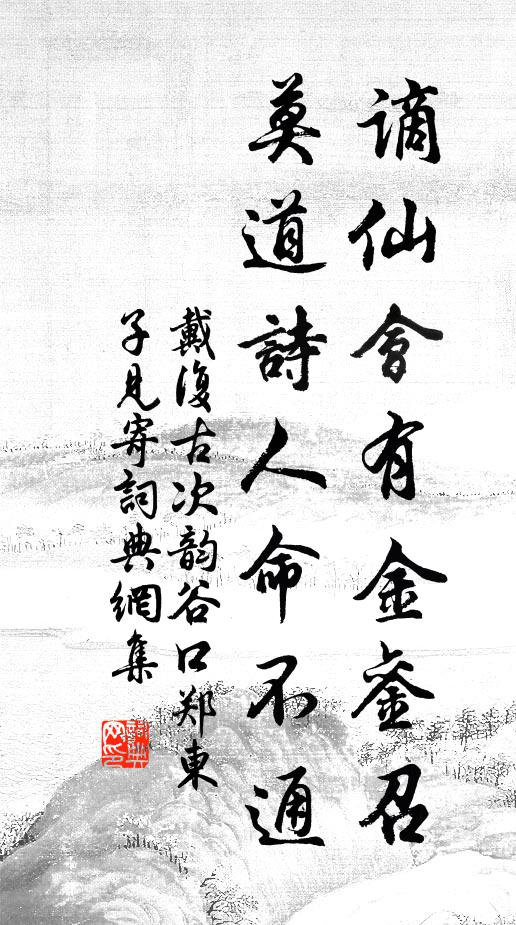 謫仙會有金銮召
莫道詩人命不通
戴復古次韵谷口郑東
子見寄詞典網集